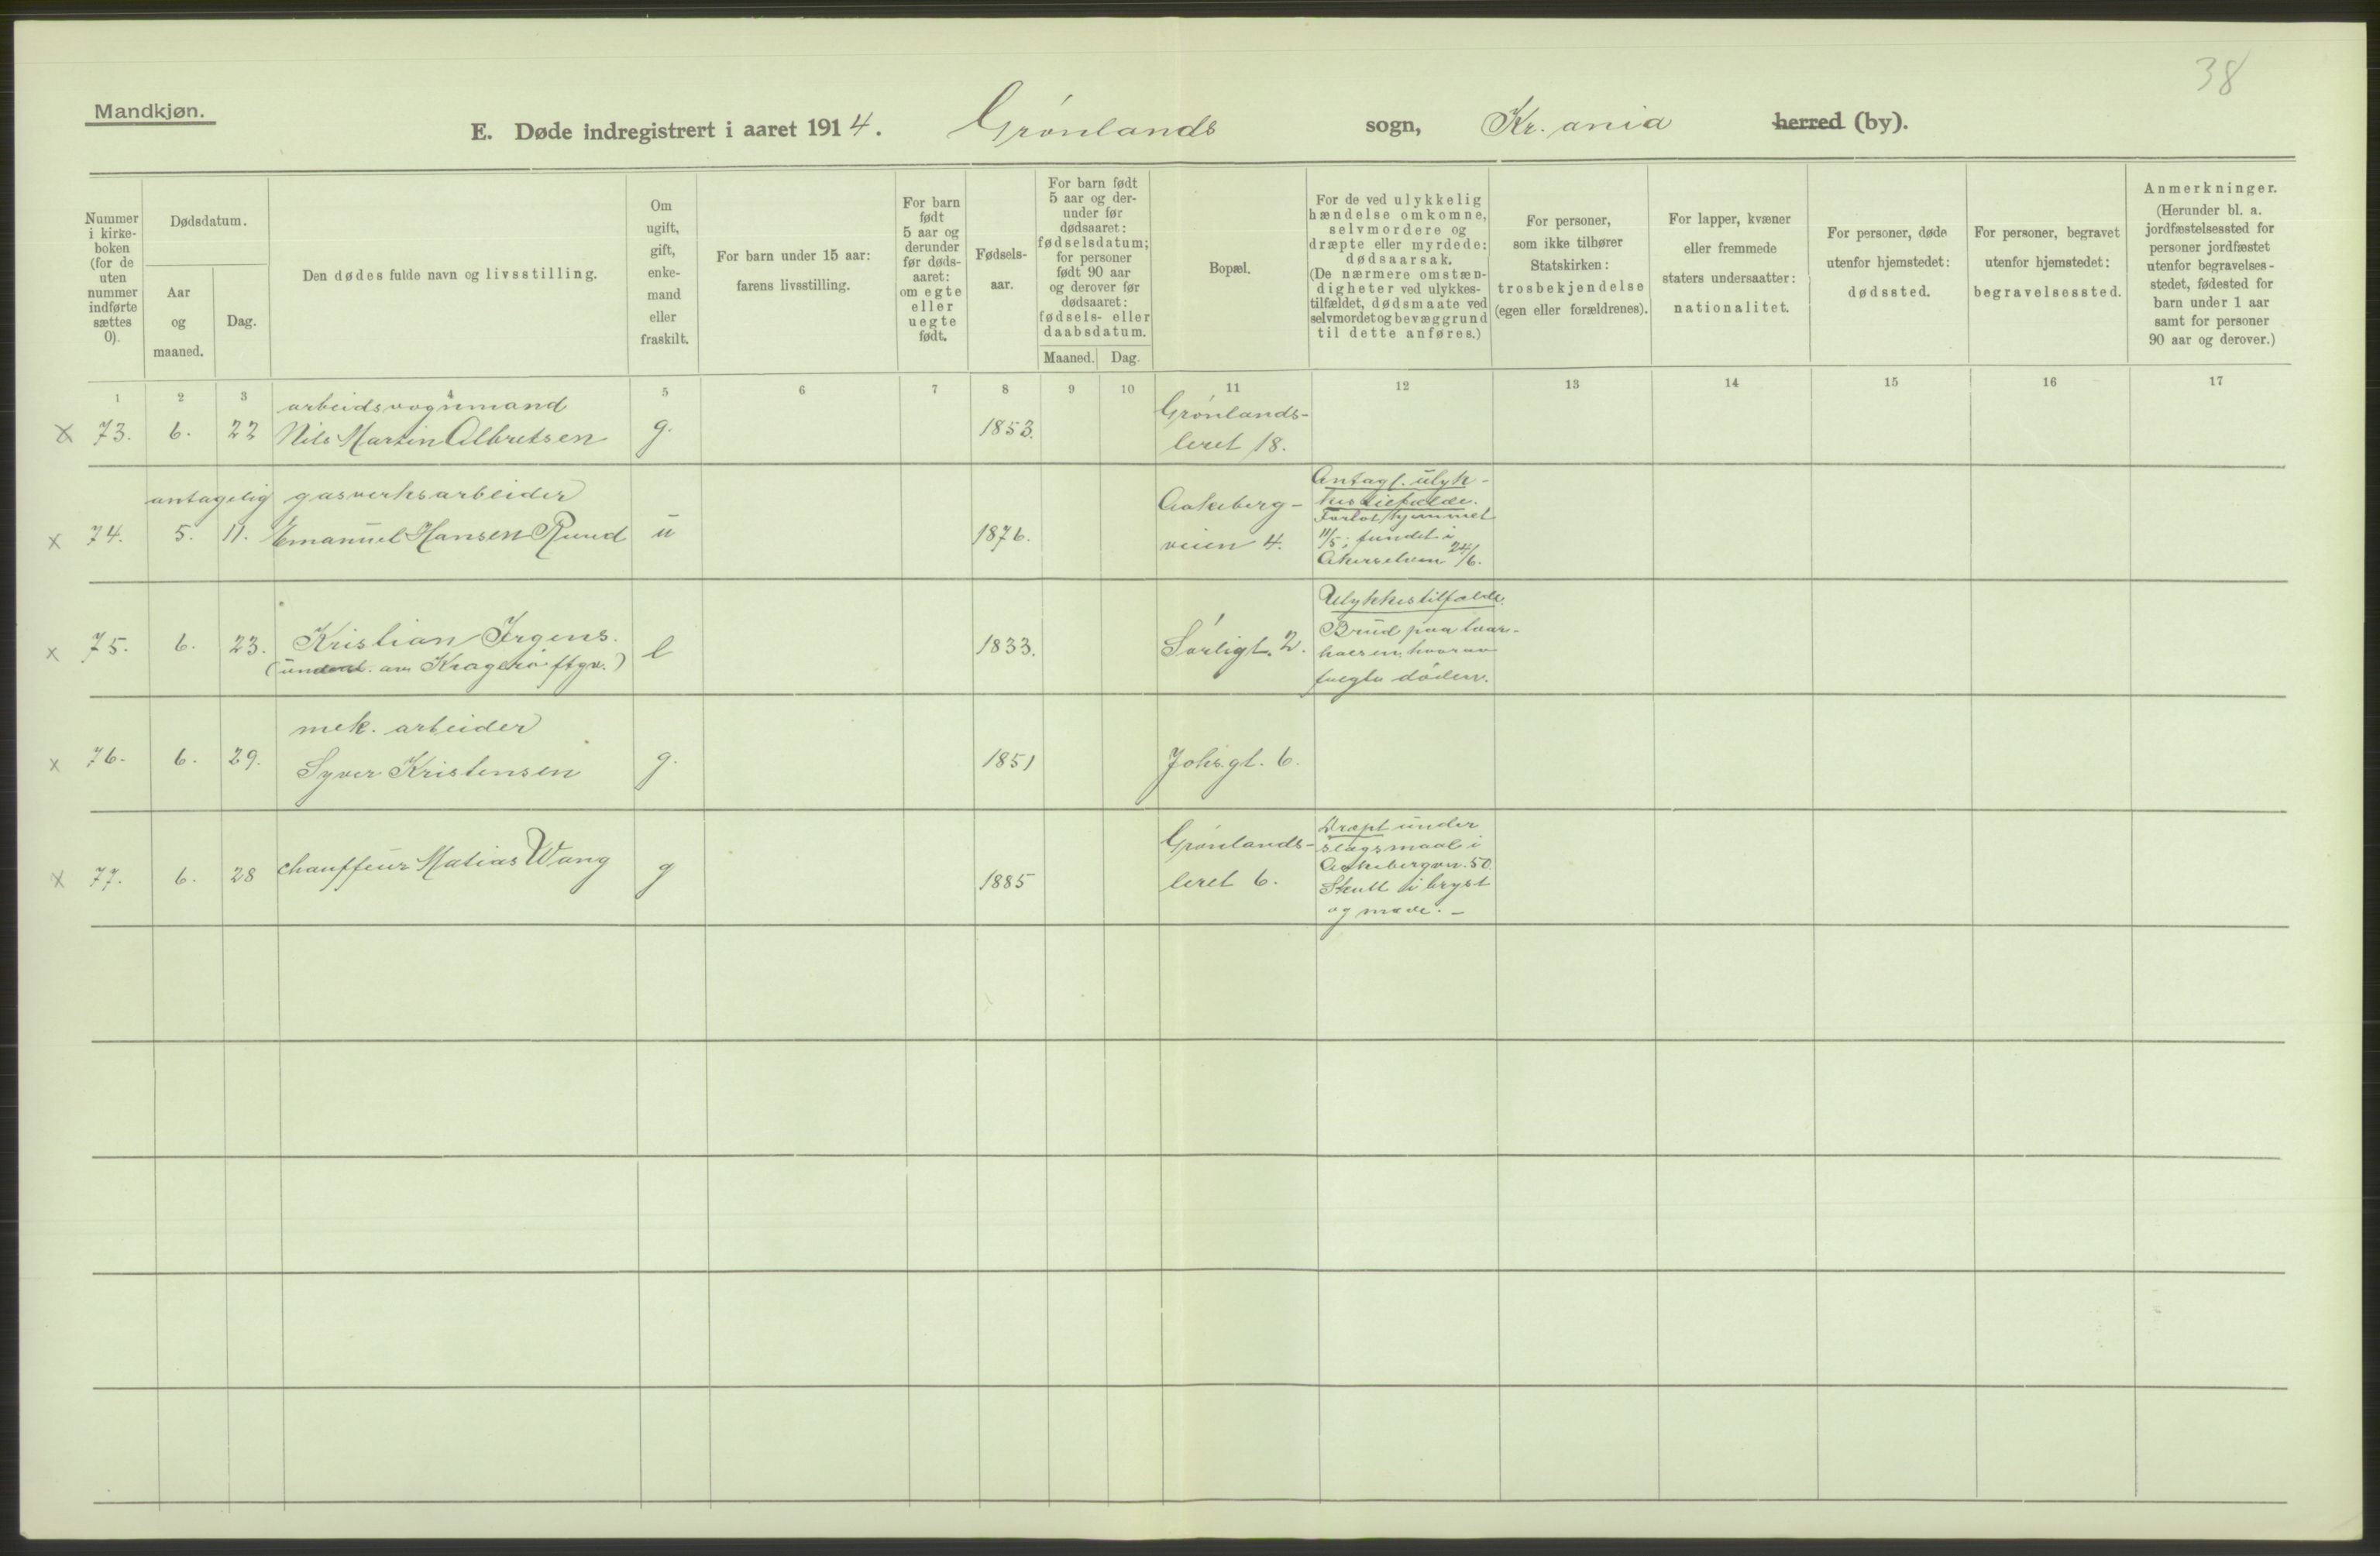 38
Mandkjøn.
E. Døde indregistrert i aaret 1914. Grønlands sogn, Kr.ania herred (by).
Nummer i kirke-boken (for de uten nummer indførte sættes 0).
Dødsdatum.
Aar og maaned.
Dag.
Den dødes fulde navn og livsstilling.
Om ugift, gift, enke-mand eller fraskilt.
For barn under 15 aar: farens livsstilling.
For barn født 5 aar og derunder før døds-aaret: om egte eller uegte født.
Fødsels-aar.
For barn født 5 aar og der-under før dødsaaret: fødselsdatum; for personer født 90 aar og derover før dødsaaret: fødsels- eller daabsdatum.
Maaned. Dag.
Bopæl.
For de ved ulykkelig hændelse omkomne, selvmordere og dræpte eller myrdede: dødsaarsak. (De nærmere omstæn-digheter ved ulykkes-tilfældet, dødsmaate ved selvmordet og bevæggrund til dette anføres.)
For personer, som ikke tilhører Statskirken: trosbekjendelse (egen eller forældrenes).
For lapper, kvæner eller fremmede staters undersaatter: nationalitet.
For personer, døde utenfor hjemstedet: dødssted.
For personer, begravet utenfor hjemstedet: begravelsessted.
Anmerkninger. (Herunder bl. a. jordfæstelsessted for personer jordfæstet utenfor begravelses-stedet, fødested for barn under 1 aar samt for personer 90 aar og derover.)
1 2 3 4 5 6 7 8 9 10 11 12 13 14 15 16 17
arbeidsvognmand
Grønlands-
x 73. 6. 22 Nils Martin Albretsen g. 1853. leret 18.
antagelig gasverksarbeider
Antagl. ulyk-
kestilfælde.
Aakeberg-
Forlot hjemmet
x 74. 5. 11. Emanuel Hansen Ruud u 1876. veien 4.
11/5; fundet i
Akerselven 24/6.
Ulykkestilfælde.
Brud paa laar-
x 75. 6. 23. Kristian Irgens. e 1833. Sørligt. 2.
halsen, hvorav
(underst. av Kragerø ftgv.)
fulgte døden.
mek. arbeider
x 76. 6. 29. Syver Kristensen g. 1851 Johs.gt. 6.
Dræpt under
Grønlands-
slagsmaal i
Aakebergvn. 50.
x 77. 6. 28 chauffeur Matias Wang g 1885 leret 6.
Skutt i bryst
og mave. –